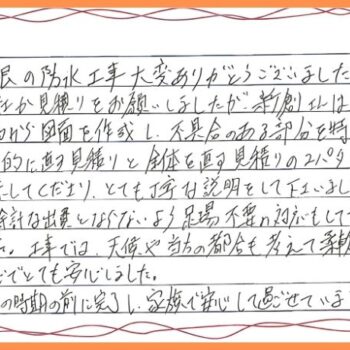 根の防水工事大変ありがとうございました
社か見積りをお願いしましたが、新創エは
から図面を作成し、不具合のある部分を特
的に直す見積りと全体を直す見積りの2パタ
してくださり、とても丁寧な説明をして下さいまし
計な出費とならないよう足場不要の対応もして
た。工事では、天候や当方の都合も考えて柔軟
とても安心しました。
の時期の前に完了し、家族で安心して過ごせていま